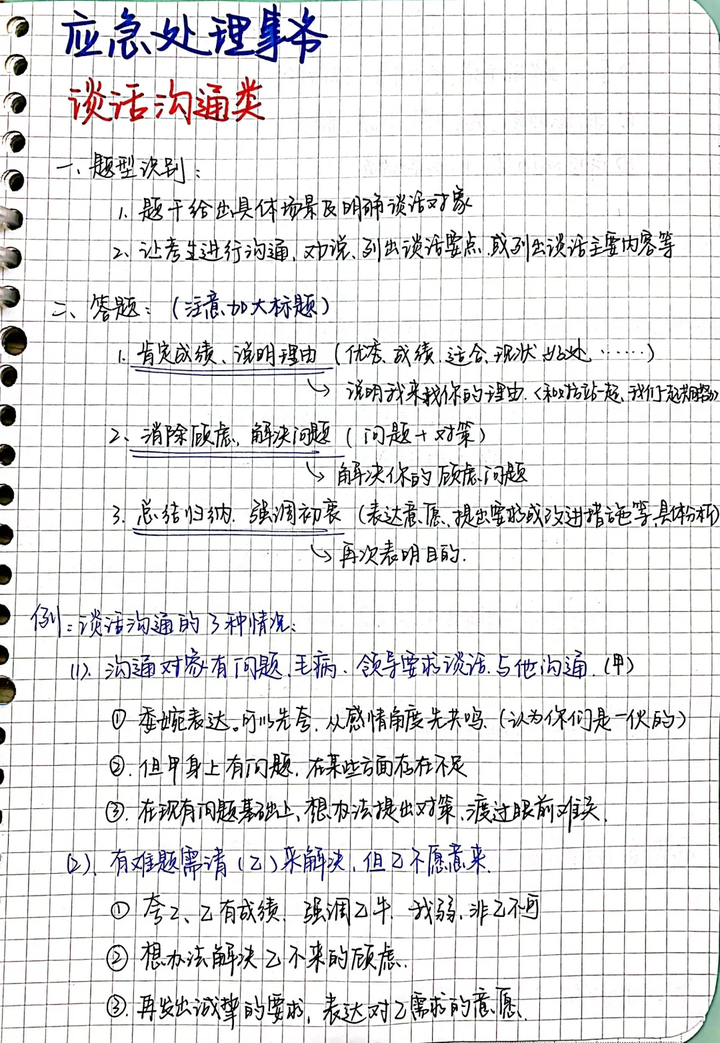 应急处理事务
谈话沟通类
一、题型识别：
1. 题干给出具体场景及明确谈话对象
2. 让考生进行沟通、劝说、列出谈话要点、或列出谈话主要内容等
二、答题：（注意加大标题）
1. 肯定成绩、说明理由（优秀、成绩、适合、现状、好处……）
↳ 说明我来找你的理由.（和对方站一起，我们一起
2. 消除顾虑，解决问题（问题+对策）
↳ 解决你的顾虑问题
3. 总结归纳．强调初衷（表达意愿、提出要求或改进措施等具体分析）
↳ 再次表明目的.
例：谈话沟通的3种情况：
(1). 沟通对象有问题、毛病．领导要求谈话．与他沟通．(甲)
① 委婉表达。可以先夸．从感情角度先共鸣．（认为你们是一伙的）
②. 但甲身上有问题．在某些方面存在不足
③. 在现有问题基础上、想办法提出对策、渡过眼前难关．
(2)、有难题需请（乙）来解决，但乙不愿意来．
① 夸乙、乙有成绩．强调乙牛．我弱，非乙不可
② 想办法解决乙不来的顾虑．
③. 再发出诚挚的要求，表达对乙需求的意愿．